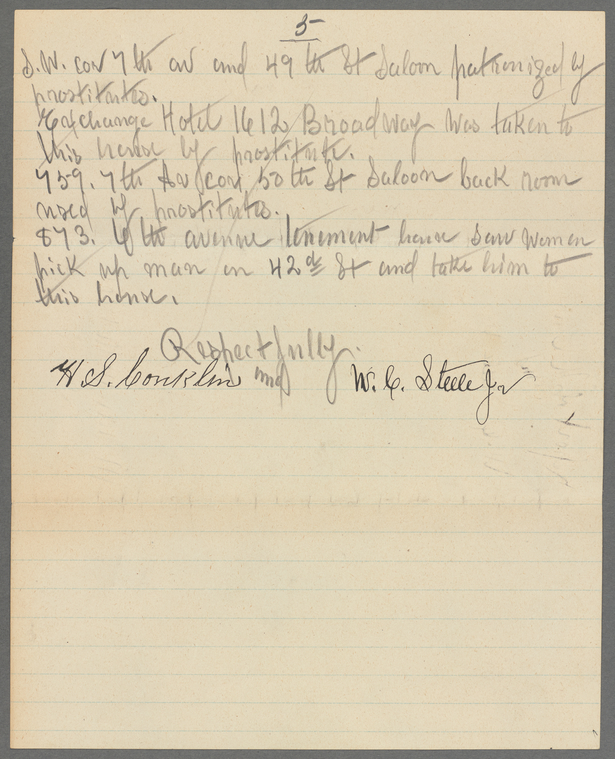 5
S.W. cor 7th av and 49th St Saloon patronized by
prostitutes.
Exchange Hotel 1612 Broadway was taken to
this house by prostitute.
759. 7th Av cor 50th St Saloon back room
used by prostitutes.
873. 6th avenue tenement house saw women
pick up man on 42d St and take him to
this house.
Respectfully.
H. S. Conklin and W. C. Steele Jr